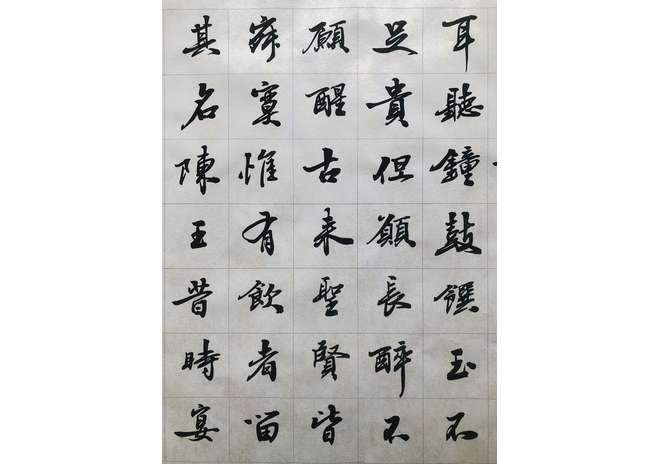 耳聽鐘鼓饌玉不
足貴但願長醉不
願醒古来聖賢皆
寂寞惟有飲者留
其名陳王昔時宴